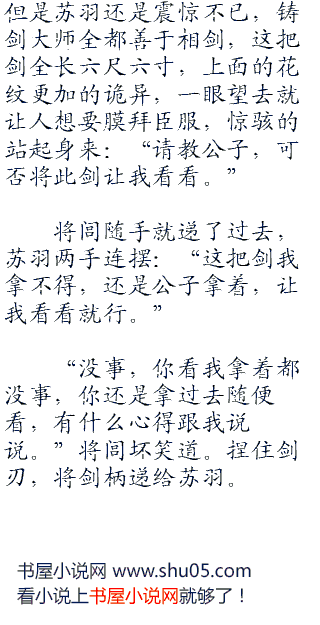 但是苏羽还是震惊不已，铸
剑大师全都善于相剑，这把
剑全长六尺六寸，上面的花
纹更加的诡异，一眼望去就
让人想要膜拜臣服，惊骇的
站起身来：“请教公子，可
否将此剑让我看看。”
将闾随手就递了过去，
苏羽两手连摆：“这把剑我
拿不得，还是公子拿着，让
我看看就行。”
“没事，你看我拿着都
没事，你还是拿过去随便
看，有什么心得跟我说
说。”将闾坏笑道。捏住剑
刃，将剑柄递给苏羽。
书屋小说网 www.shu05.com
看小说上书屋小说网就够了！